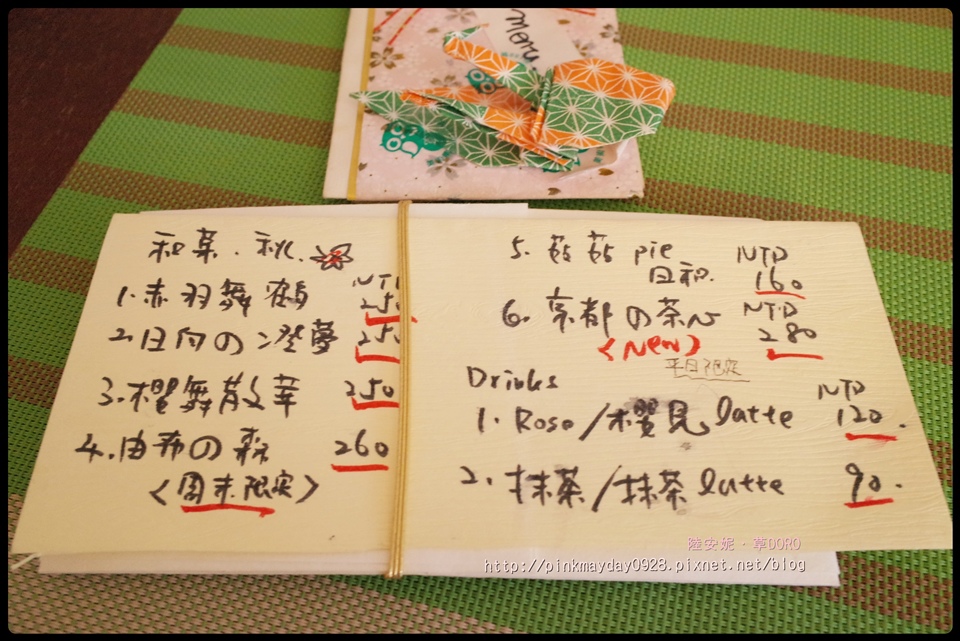 menu
和菓.秋.
NTD
1.赤羽舞鶴 250
2.日向の澄夢 250
3.櫻舞散華 250
4.由布の森 260
<周末限定>
5.菇菇 pie NTD
日和. 160
6.京都の茶心 NTD
280
<New>
平日限定
Drinks
NTD
1. Rose/櫻見 latte 120.
2. 抹茶/抹茶 latte 90.
陸安妮‧草DORO
http://pinkmayday0928.pixnet.net/blog